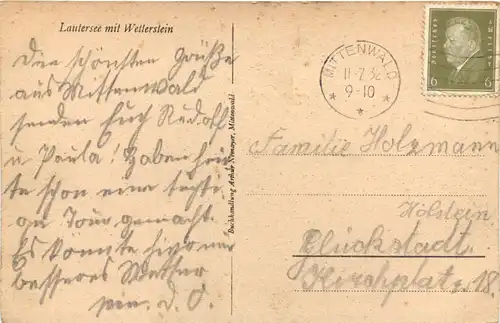 Lautersee mit Wetterstein
Die schönsten Grüße
aus Mittenwald
senden Euch Rudolf
u Paula! Haben heu-
te schon eine
Tour gemacht.
Es könnte hier nur
besseres Wetter
sein. d. O.
Buchhandlung Arthur Niemeyer, Mittenwald
MITTENWALD
11·7·32
9-10
DEUTSCHES REICH
6 6
Familie Holzmann
Holstein
Glückstadt
Kirchplatz 18.